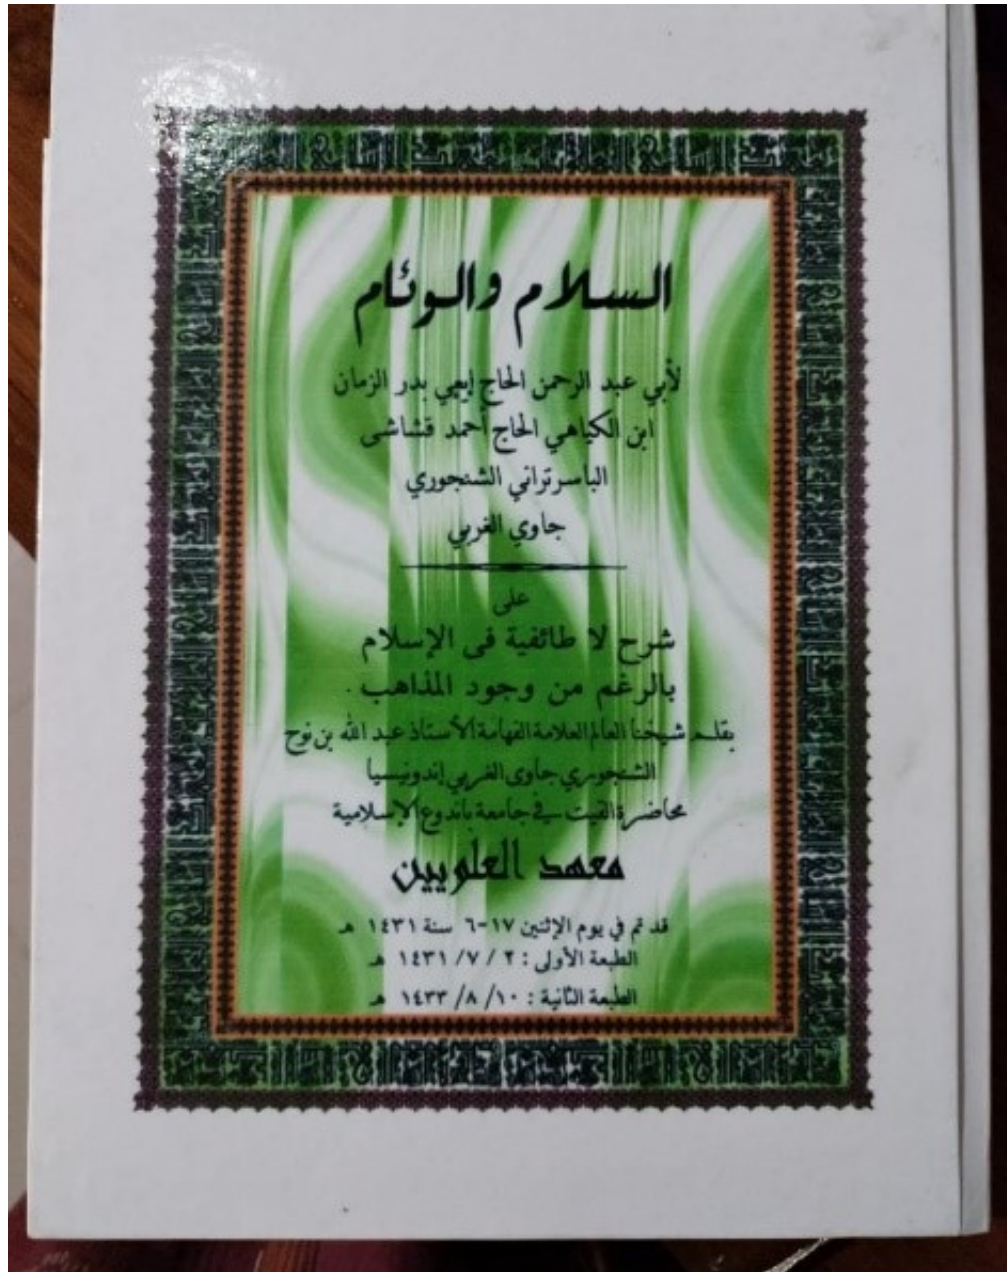 السلام والوئام
لأبي عبد الرحمن الحاج إيعي بدر الزمان
ابن الكياهي الحاج أحمد قشاشى
الباسرتراني الشنجوري
جاوي الغربي
على
شرح لا طائفية فى الإسلام
بالرغم من وجود المذاهب .
بقلم شيخنا العالم العلامة الفهامة الأستاذ عبد الله بن نوح
الشنجوري جاوى الغربي إندونيسيا
محاضرة القيت في جامعة باندوع الإسلامية
معهد العلويين
قد تم في يوم الإثنين ١٧-٦ سنة ١٤٣١ هـ
الطبعة الأولى : ٢ / ٧/ ١٤٣١ هـ
الطبعة الثانية : ١٠/ ٨/ ١٤٣٣ هـ